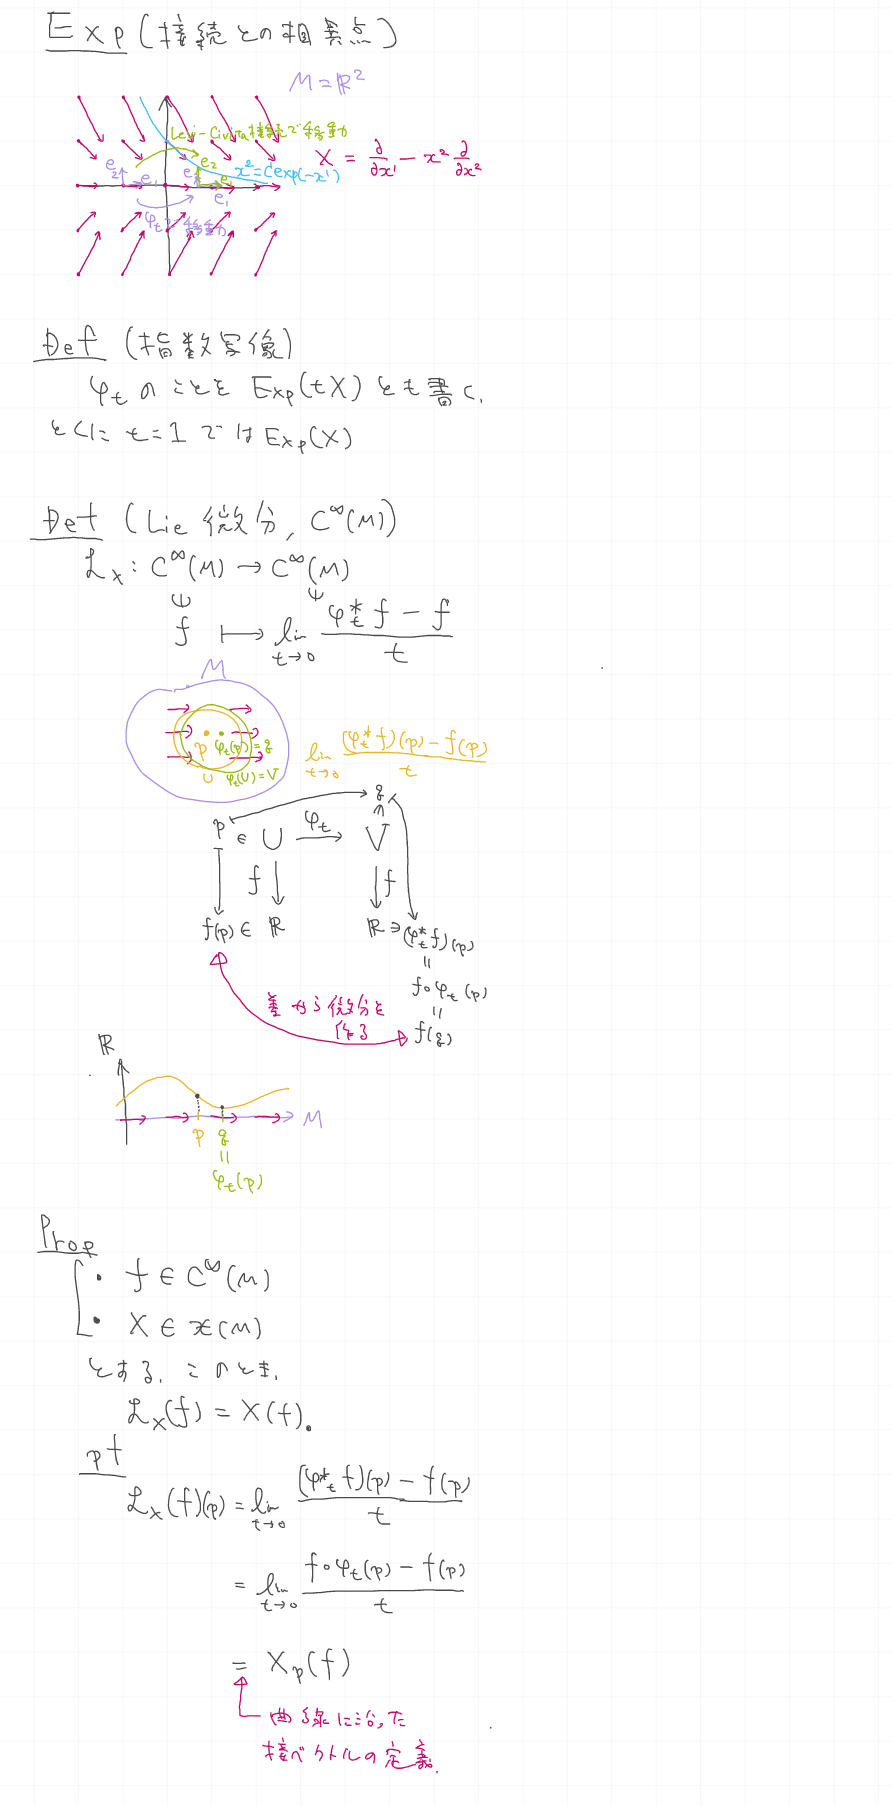 Exp (接続との相異点)
M = ℝ²
Levi-Civita接続で移動
X = ∂/∂x¹ - x² ∂/∂x²
e₂ e₁
e₂ e₂ e₁ e₁
x² = C exp(-x¹)
φₜで移動
Def (指数写像)
φₜ のことを Exp(tX) とも書く.
とくに t=1 では Exp(X)
Def (Lie 微分, C^∞(M))
ℒ_X : C^∞(M) → C^∞(M)
f ↦ lim_{t→0} (φₜ* f - f)/t
M
p φₜ(p) = q
U φₜ(U) = V
lim_{t→0} ((φₜ* f)(p) - f(p))/t
q
p ∈ U →φₜ V
f f
f(p) ∈ ℝ ℝ ∋ (φₜ* f)(p)
=
f∘φₜ(p)
=
f(q)
差から微分を
作る
ℝ
M
p q
=
φₜ(p)
Prop
・ f ∈ C^∞(M)
・ X ∈ 𝔛(M)
とする. このとき.
ℒ_X(f) = X(f).
pf
ℒ_X(f)(p) = lim_{t→0} ((φₜ* f)(p) - f(p))/t
= lim_{t→0} (f∘φₜ(p) - f(p))/t
= X_p(f)
曲線に沿った
接ベクトルの定義.